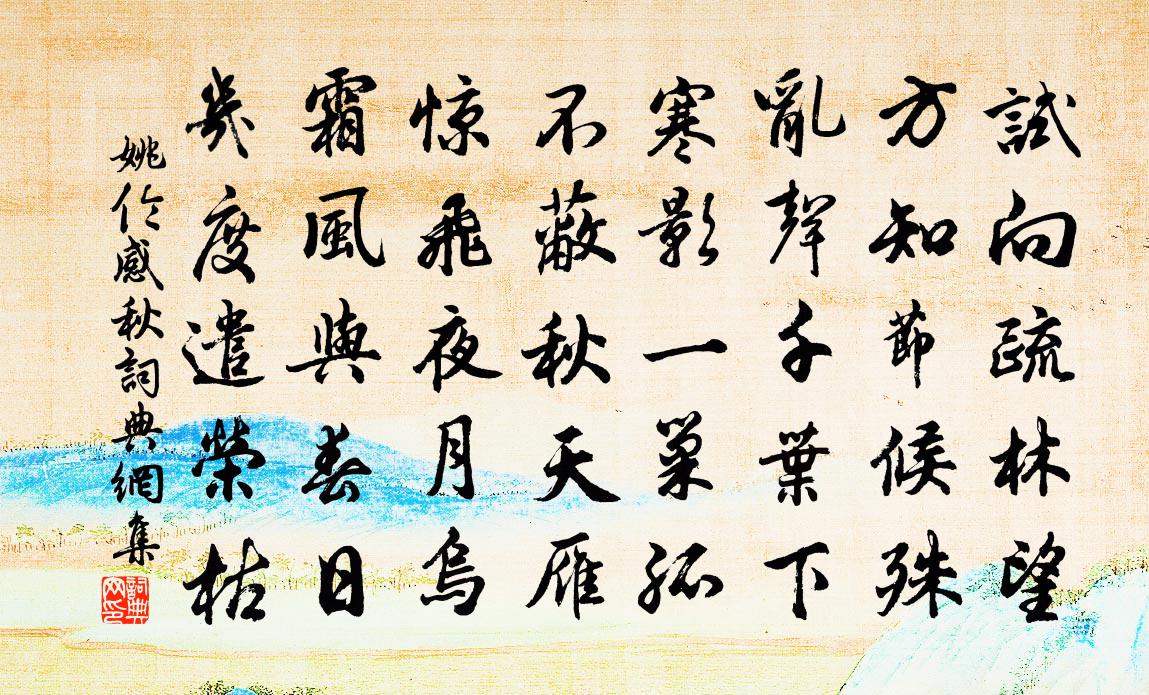 試向疏林望
方知節候殊
亂聲千葉下
寒影一巢孤
不蔽秋天雁
惊飛夜月烏
霜風與春日
幾度遣榮枯
姚倫感秋詞典網集
詞典網印